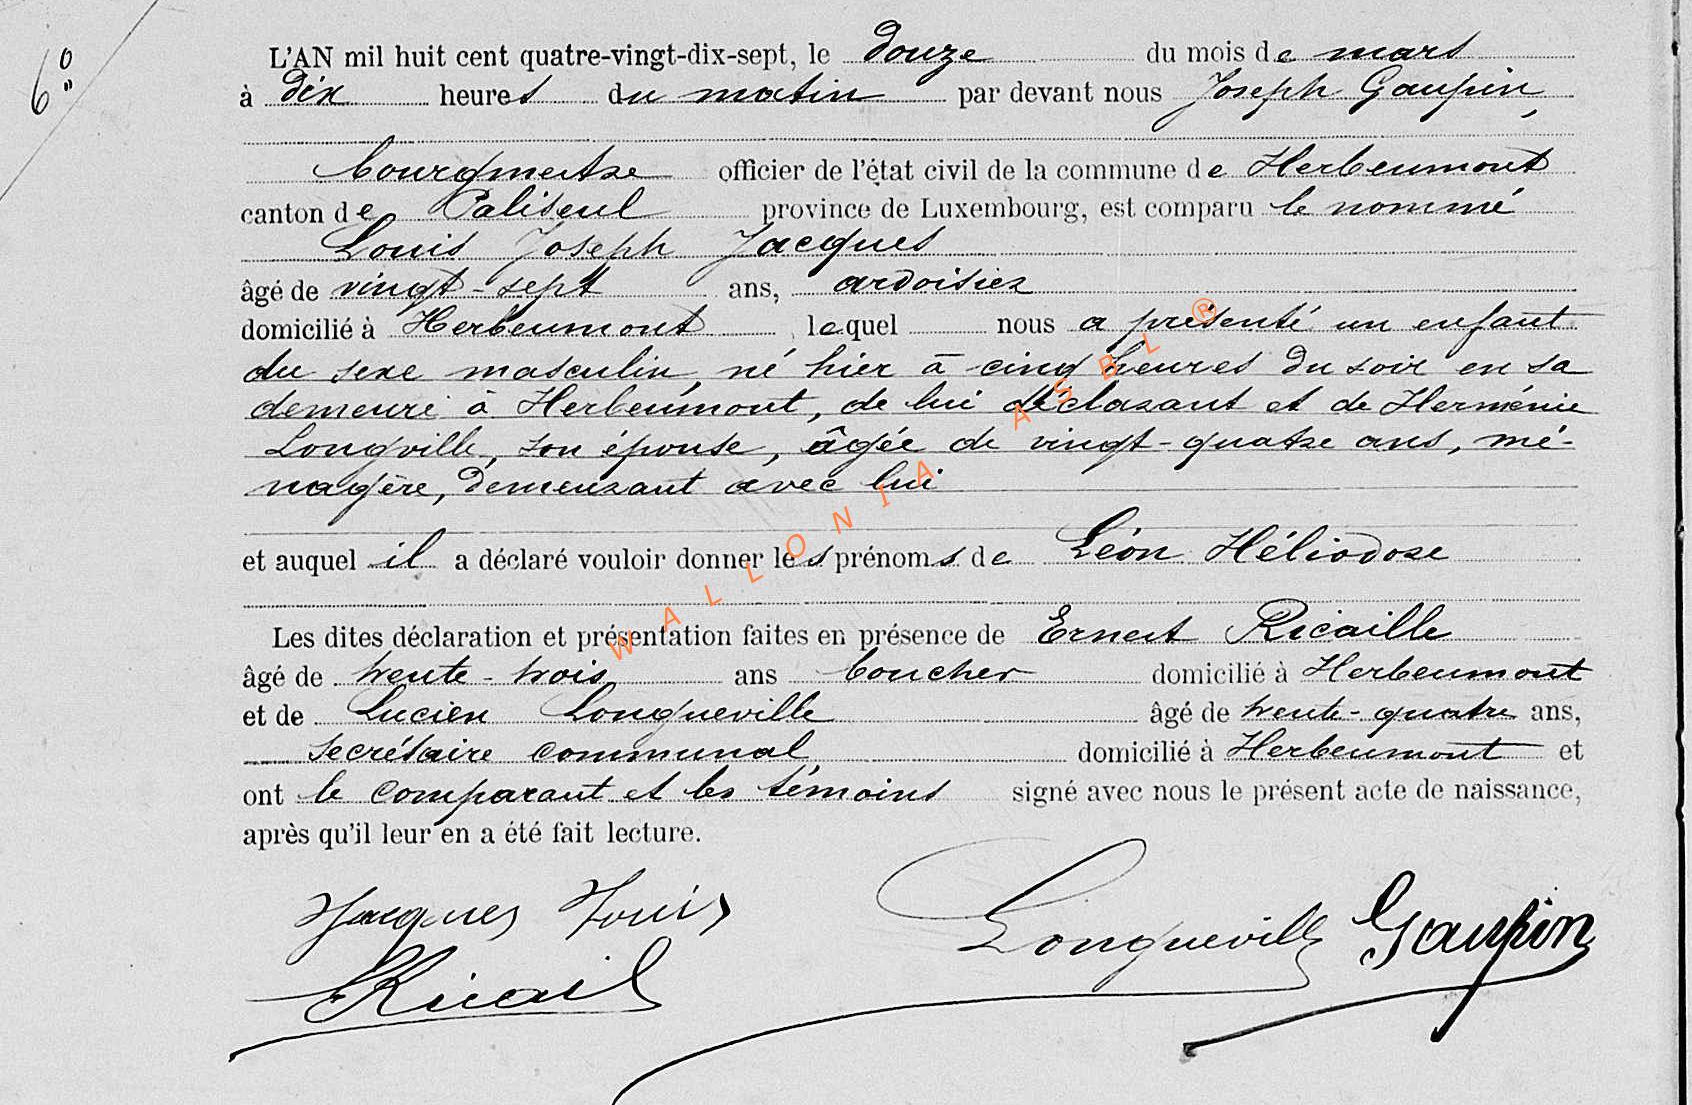 6°
L'AN mil huit cent quatre-vingt-dix-sept, le douze du mois de mars
à dix heures du matin par devant nous Joseph Gaupin,
bourgmestre officier de l'état civil de la commune de Herbeumont
canton de Paliseul province de Luxembourg, est comparu le nommé
Louis Joseph Jacques
âgé de vingt-sept ans, ardoisier
domicilié à Herbeumont lequel nous a présenté un enfant
du sexe masculin, né hier à cinq heures du soir en sa
demeure à Herbeumont, de lui déclarant et de Herménie
Longville, son épouse, âgée de vingt-quatre ans, mé-
nagère, demeurant avec lui
et auquel il a déclaré vouloir donner les prénoms de Léon Héliodore
Les dites déclaration et présentation faites en présence de Ernest Ricaille
âgé de trente-trois ans boucher domicilié à Herbeumont
et de Lucien Longueville âgé de trente-quatre ans,
secrétaire communal domicilié à Herbeumont et
ont le comparant et les témoins signé avec nous le présent acte de naissance,
après qu'il leur en a été fait lecture.
Jacques Louis
Longueville Gaupin
ERicail
WALLONIA ASBL ®